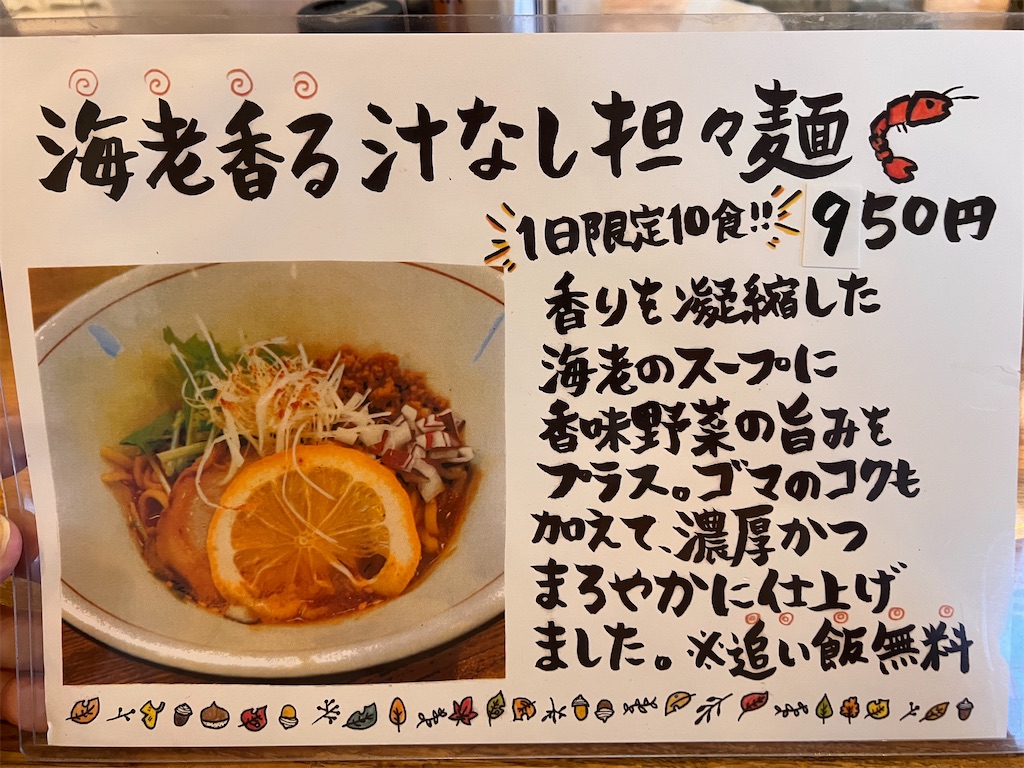 海老香る汁なし担々麺
1日限定10食!! 950円
香りを凝縮した
海老のスープに
香味野菜の旨みを
プラス。ゴマのコクも
加えて、濃厚かつ
まろやかに仕上げ
ました。※追い飯無料